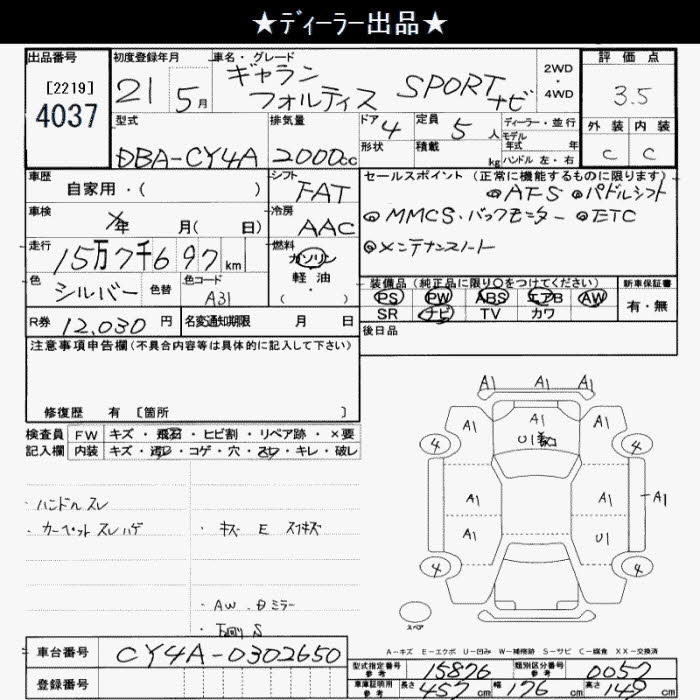 ★ディーラー出品★
出品番号
[2219]
4037
初度登録年月
21 5月
車名・グレード
ギャラン
フォルティス SPORT ナビ
2WD
・
4WD
評価点
3.5
外装 内装
C C
型式
DBA-CY4A
排気量
2000cc
ドア 4
形状
定員 5 人
積載 kg
ディーラー・並行
モデル
年式 年
ハンドル 左・右
車歴
自家用・( )
シフト
FAT
セールスポイント (正常に機能するものに限ります)
◎AFS ◎パドルシフト
◎MMCS・バックモニター ◎ETC
◎メンテナンスノート
車検
年 月( 日)
冷房
AAC
走行
15万7千697km
燃料
ガソリン
軽油
( )
色
シルバー
色替
色コード
A31
装備品 (純正品に限り○をつけてください)
PS PW ABS エアB AW
SR ナビ TV カワ
新車保証書
有・無
R券 12,030円
名変通知期限 月 日
後日品
注意事項申告欄(不具合内容等は具体的に記入して下さい)
修復歴 有 [箇所 ]
検査員 FW キズ・飛石・ヒビ割・リペア跡・×要
記入欄 内装 キズ・汚レ・コゲ・穴・スレ・キレ・破レ
・ハンドルスレ
・カーペットスレハゲ
・キズ E スリキズ
・AW、ミラー
・下回り S
A1 A1 A1
A1 A1 A1
U1
4 4
A1 A1 A1
A1 U1
4 4
スペア
A-キズ E-エクボ U-凹み W-補修跡 S-サビ C-腐食 XX-交換済
車台番号 CY4A-0302650
登録番号
型式指定番号
参考
15876
類別区分番号
参考
0057
車庫証明用
参考
長さ 457cm 幅 176cm 高さ 149cm